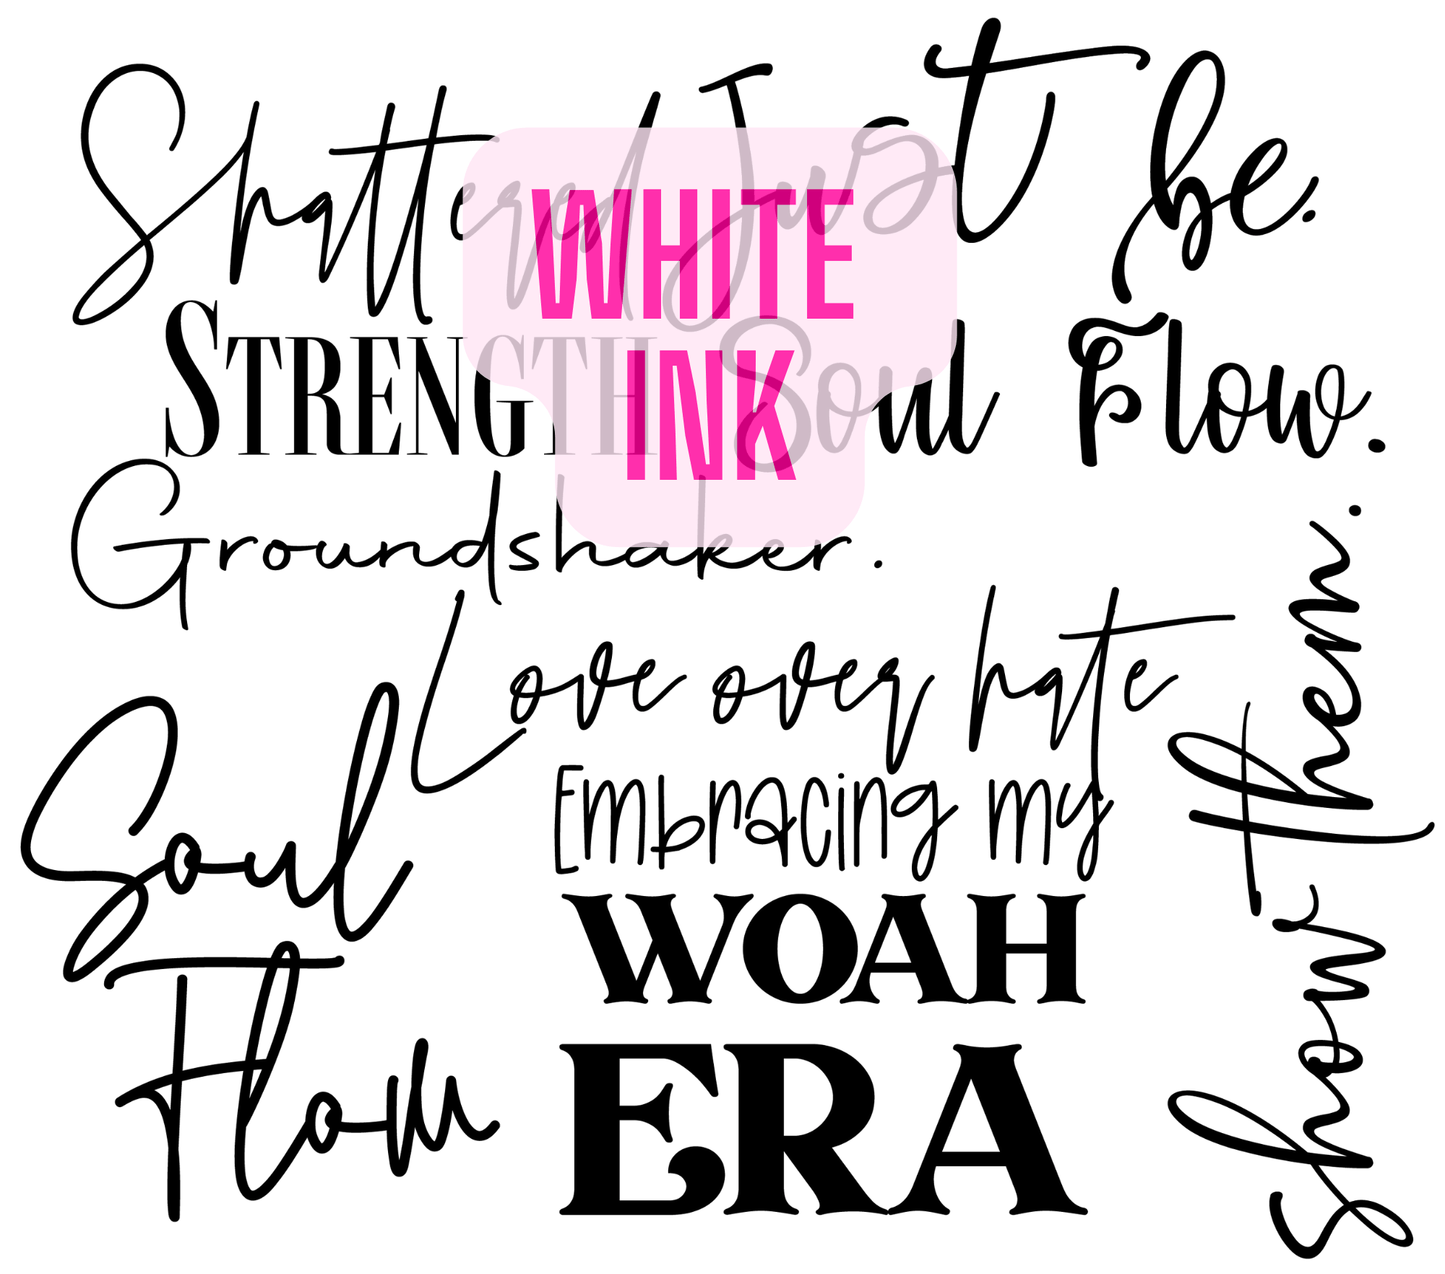 Shattered
Just be.
STRENGTH
Soul Flow.
WHITE
INK
Groundshaker.
Love over hate
Embracing my
WOAH
ERA
Soul
Flow
show them.